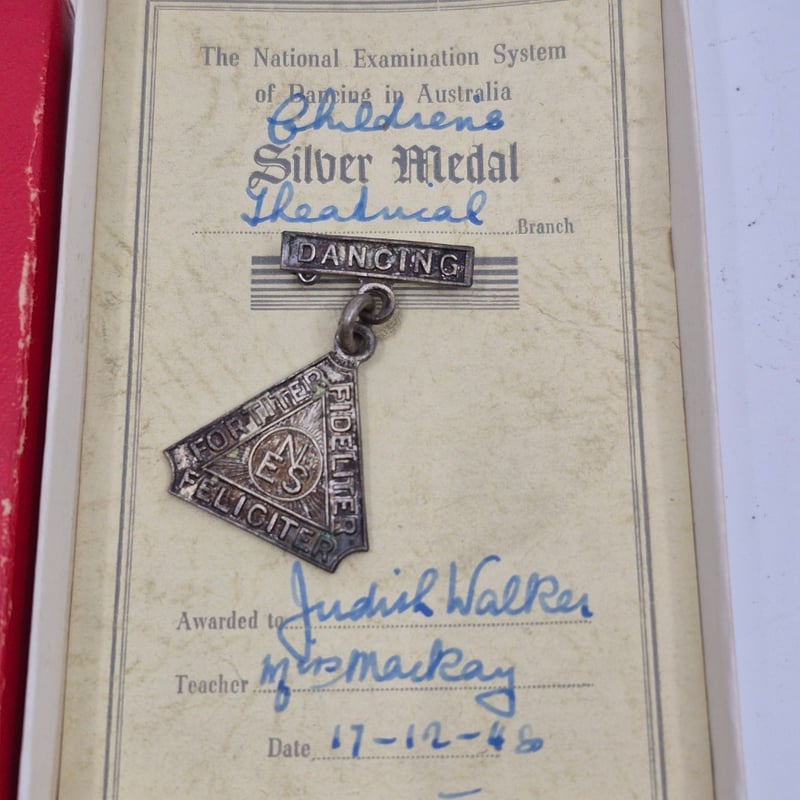 The National Examination System
of Dancing in Australia
Children's
Silver Medal
Theatrical Branch
DANCING
FORTITER
FIDELITER
FELICITER
N
ES
Awarded to Judith Walker
Teacher Mrs Mackay
Date 17-12-48